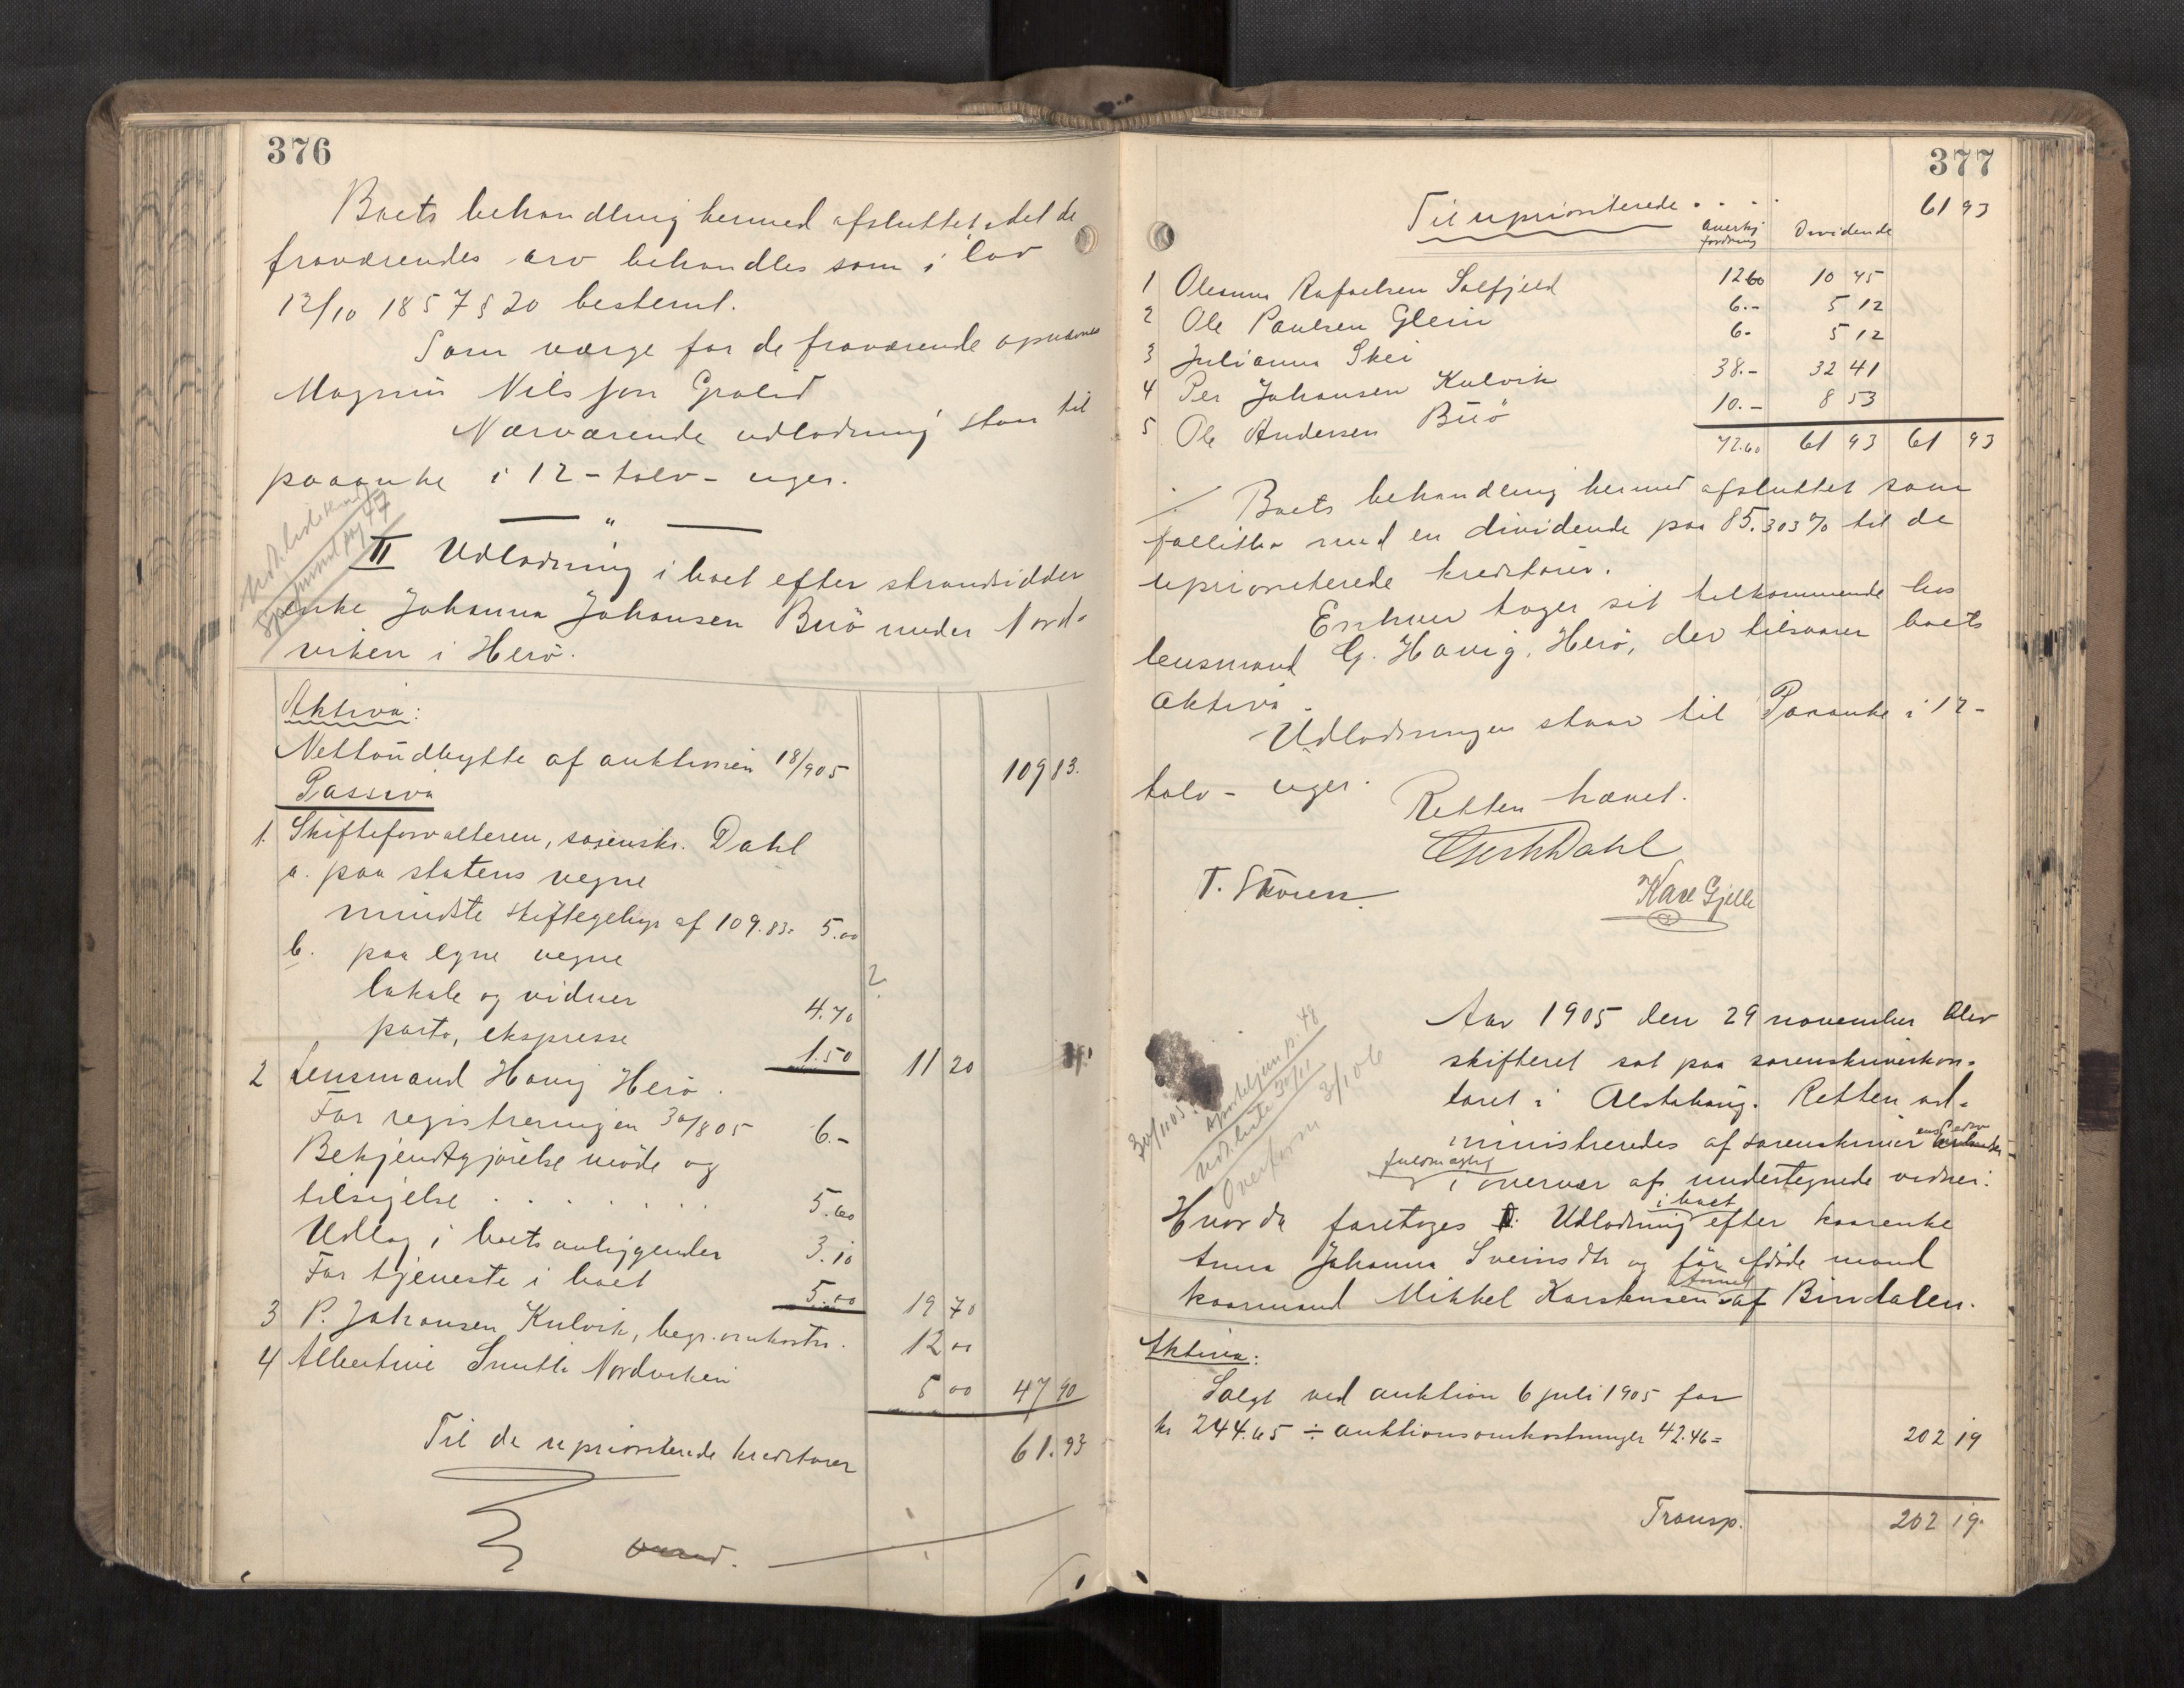 376
Boets behandling hermed afsluttet, idet de
fraværendes arv behandles som i lov
12/10 1857 § 20 bestemt.
Som værge for de fraværende opnævnes
Magnus Nilssøn Grolid
Nærværende udlodning staar til
paaanke i 12 - tolv - uger.
II Udlodning i boet efter strandsidder
enke Johanna Johansen Buö under Nord-
viken i Herö.
Aktiva:
Nettoudbytte af auktionen 18/905 109 83.
Passiva
1. Skifteforvalteren, sorenskr. Dahl
a. paa statens vegne
mindste skiftegebyr af 109.83. 5.00
b. paa egne vegne
lokale og vidner 4.70
porto, ekspresse 1.50 11 20
2 Lensmand Havig Herö.
For registreringen 30/8 05 6.-
Bekjendtgjörelse möde og
tilsigelse . . . . . . 5.60
Udlæg i boets anliggender 3.10
For tjeneste i boet 5.00 19 70
3 P. Johansen Kulvik, begr. omkostn. 12 00
4 Albertine Smith Nordviken 5 00 47 90
Til de uprioriterede kreditorer 61.93
377
Til uprioriterede . . . . 61 93
Anerkj. fordring Dividende
1 Olesum Rafaelsen Salfjeld 12 60 10 45
2 Ole Paulsen Glein 6.- 5 12
3 Julianna Skei 6- 5 12
4 Per Johansen Kulvik 38.- 32 41
5 Ole Andersen Buö 10.- 8 53
72.60 61 93 61 93
Boets behandling hermed afsluttet som
fallitbo med en dividende paa 85.303 % til de
uprioriterede kreditorer.
Enhver tager sit tilkommende hos
lensmand G. Havig, Herö, der tilsvarer boets
aktiva.
Udlodningen staar til Paaanke i 12 -
tolv - uger.
Retten hævet.
Dahl
T. Støren.
Karl Gjelle
Aar 1905 den 29 november blev
skifteret sat paa sorenskriverkon-
toret i Alstahaug. Retten ad-
ministreredes af sorenskriver
fuldmægtig
i overvær af undertegnede vidner:
Hvorda foretoges I. Udlodning i boet efter kaarenke
Anna Johanna Sveinsdtr og för afdöde mand
kaarmand Mikkel Karstensen af Bindalen.
Aktiva:
Solgt ved auktion 6 juli 1905 for
kr 244.65 ÷ auktionsomkostninger 42.46 = 202 19
Transp. 202 19.
30/1105.